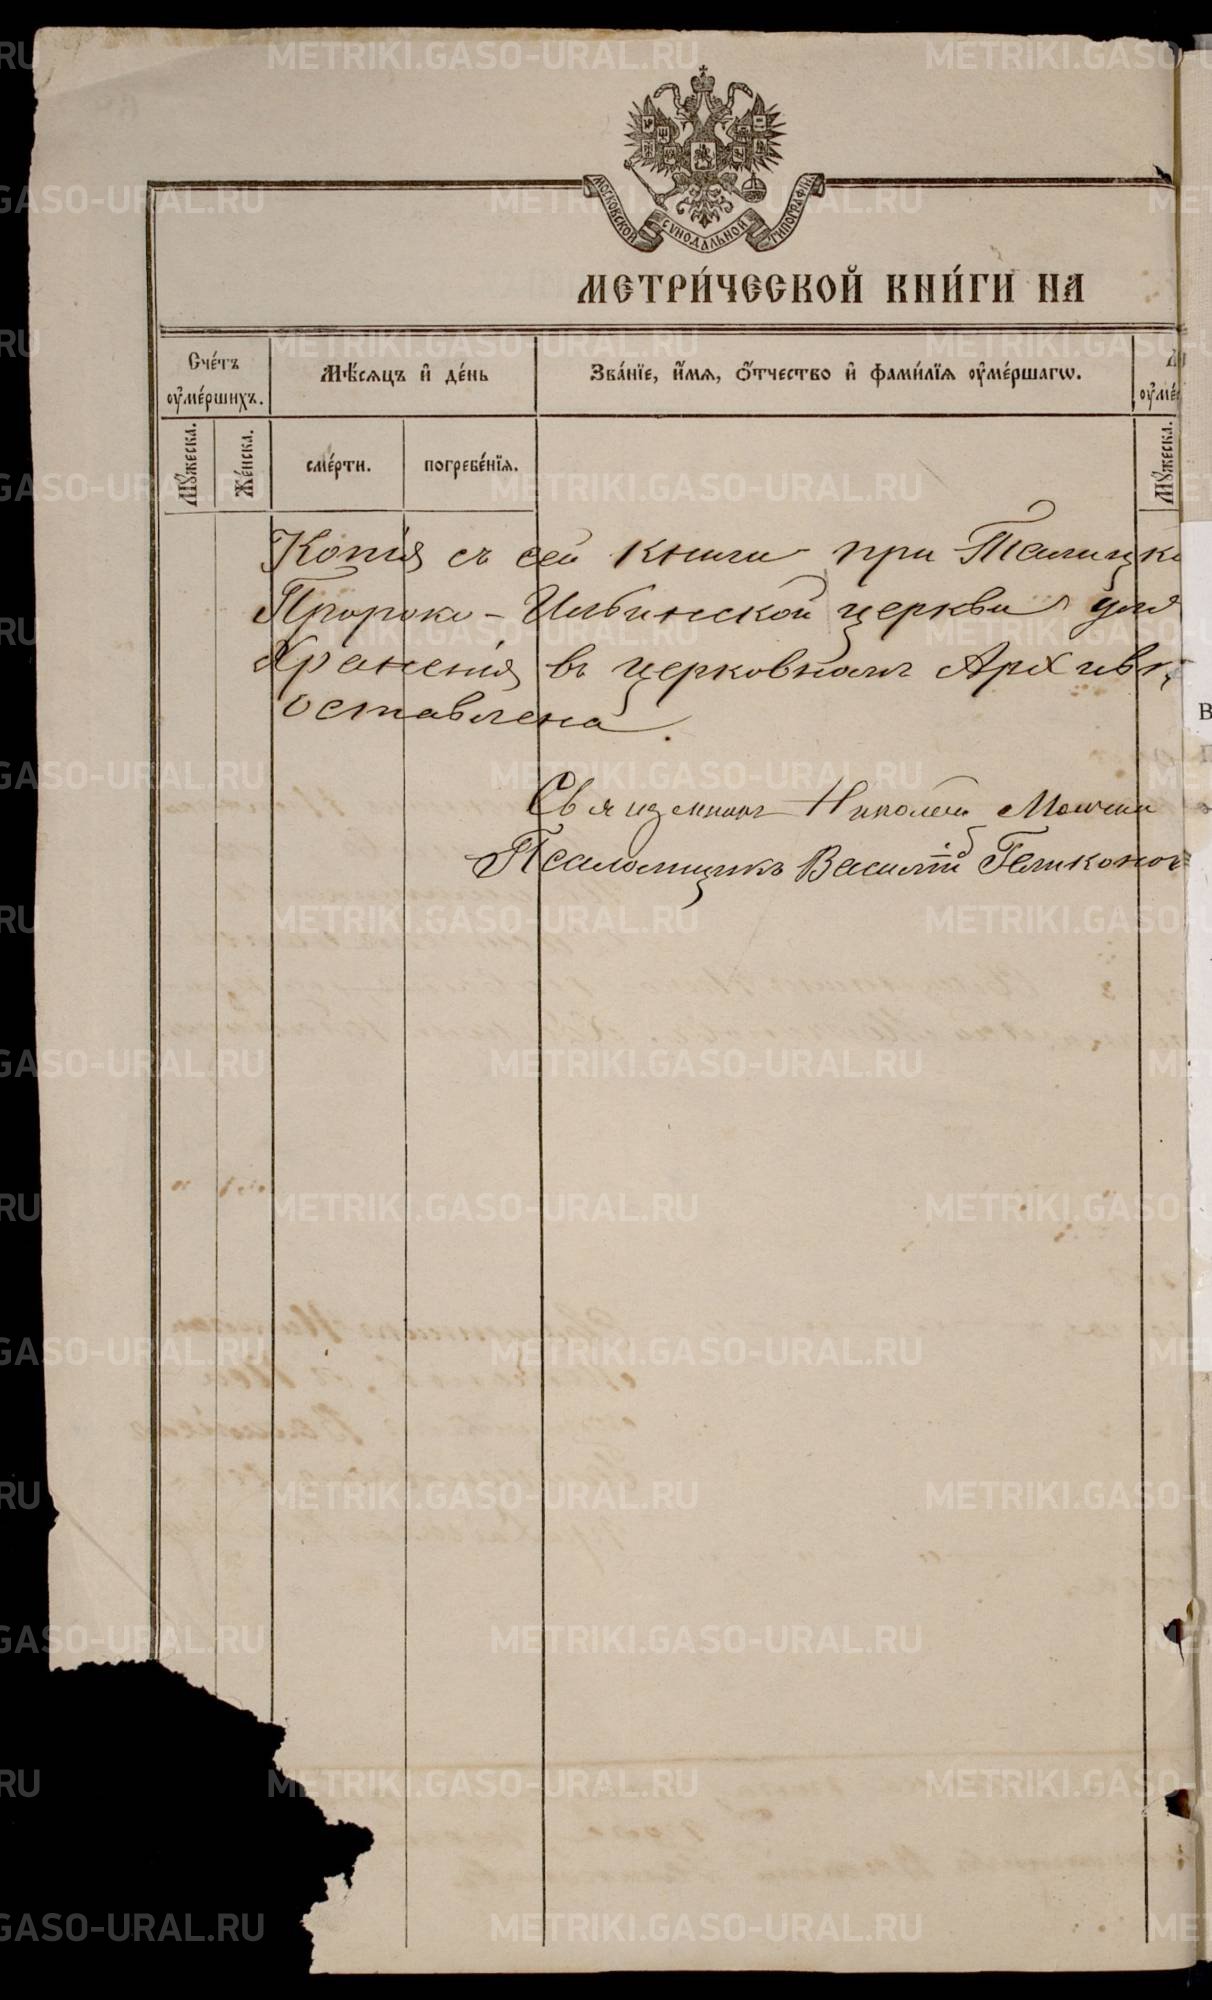 МОСКОВСКОЙ СѴНОДАЛЬНОЙ ТИПОГРАФІИ
МЕТРИ́ЧЕСКОЙ КНИ́ГИ НА
Сче́тъ
оу҆ме́ршихъ.
Мѣ́сяцъ и҆ де́нь
Зва́нїе, и҆́мя, ѻ҆́тчество и҆ фами́лїя оу҆ме́ршагѡ.
Мꙋ́жеска.
Же́нска.
сме́рти.
погребе́нїя.
Мꙋ́жеска.
Копія съ сей книги при Талицко
Пророко-Ильинской церкви для
Храненія въ церковномъ Архивѣ
оставлена.
Священникъ Николай
Псаломщикъ Василій
METRIKI.GASO-URAL.RU